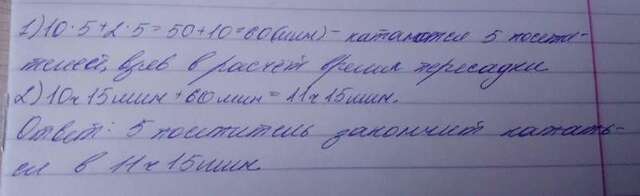 1) 10·5+2·5=50+10=60(мин) - катаются 5 посети-
телей, взяв в расчёт время пересадки
2) 10ч 15мин + 60мин = 11ч 15мин.
Ответ: 5 поситисель закончит катать-
ся в 11ч 15мин.